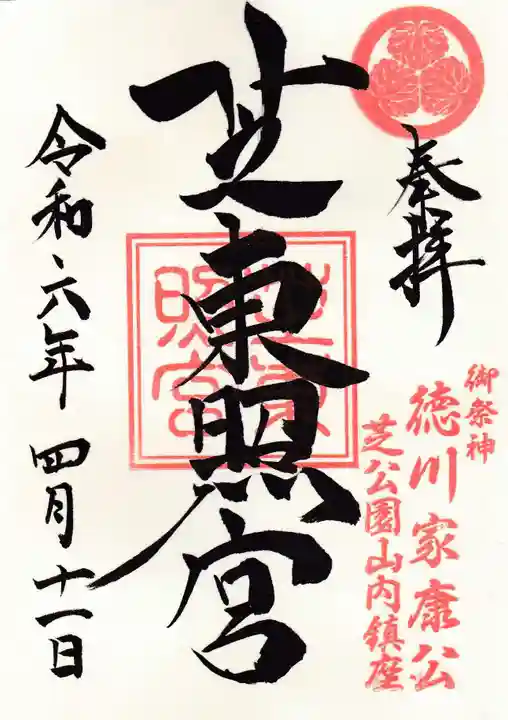 奉拝
御祭神
徳川家康公
芝公園山内鎮座
芝東照宮
芝東照宮
令和六年 四月十一日